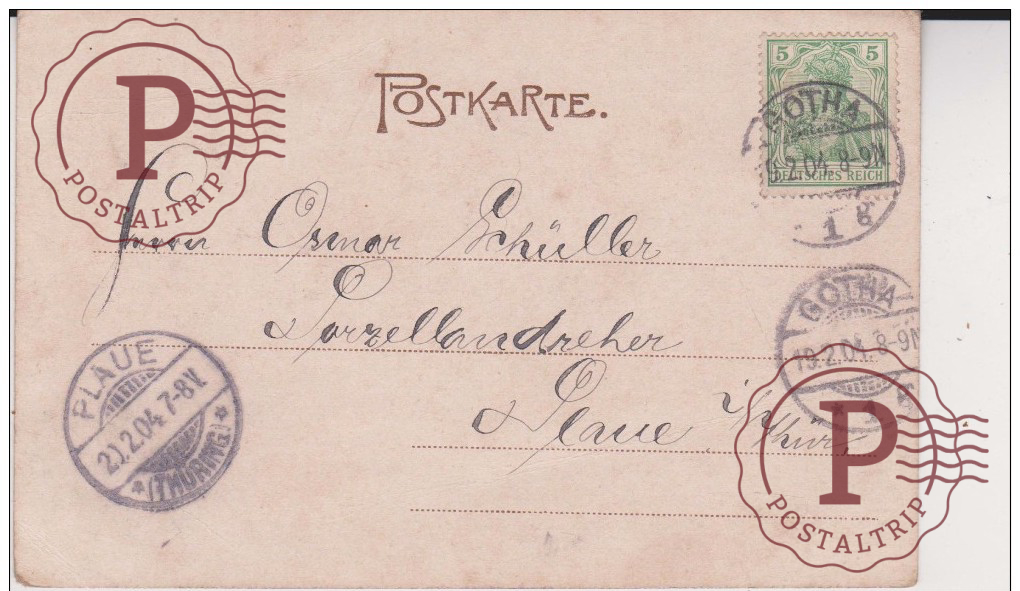 POSTKARTE.
5 5
DEUTSCHES REICH
GOTHA
19.2.04. 8-9N
1 g
P
POSTALTRIP
Herrn Osmar Schüller
Porzellandreher
Plaue i/Thür.
GOTHA
19.2.04. 8-9N
PLAUE
20.2.04 7-8V.
*(THÜRING.)*
P
POSTALTRIP